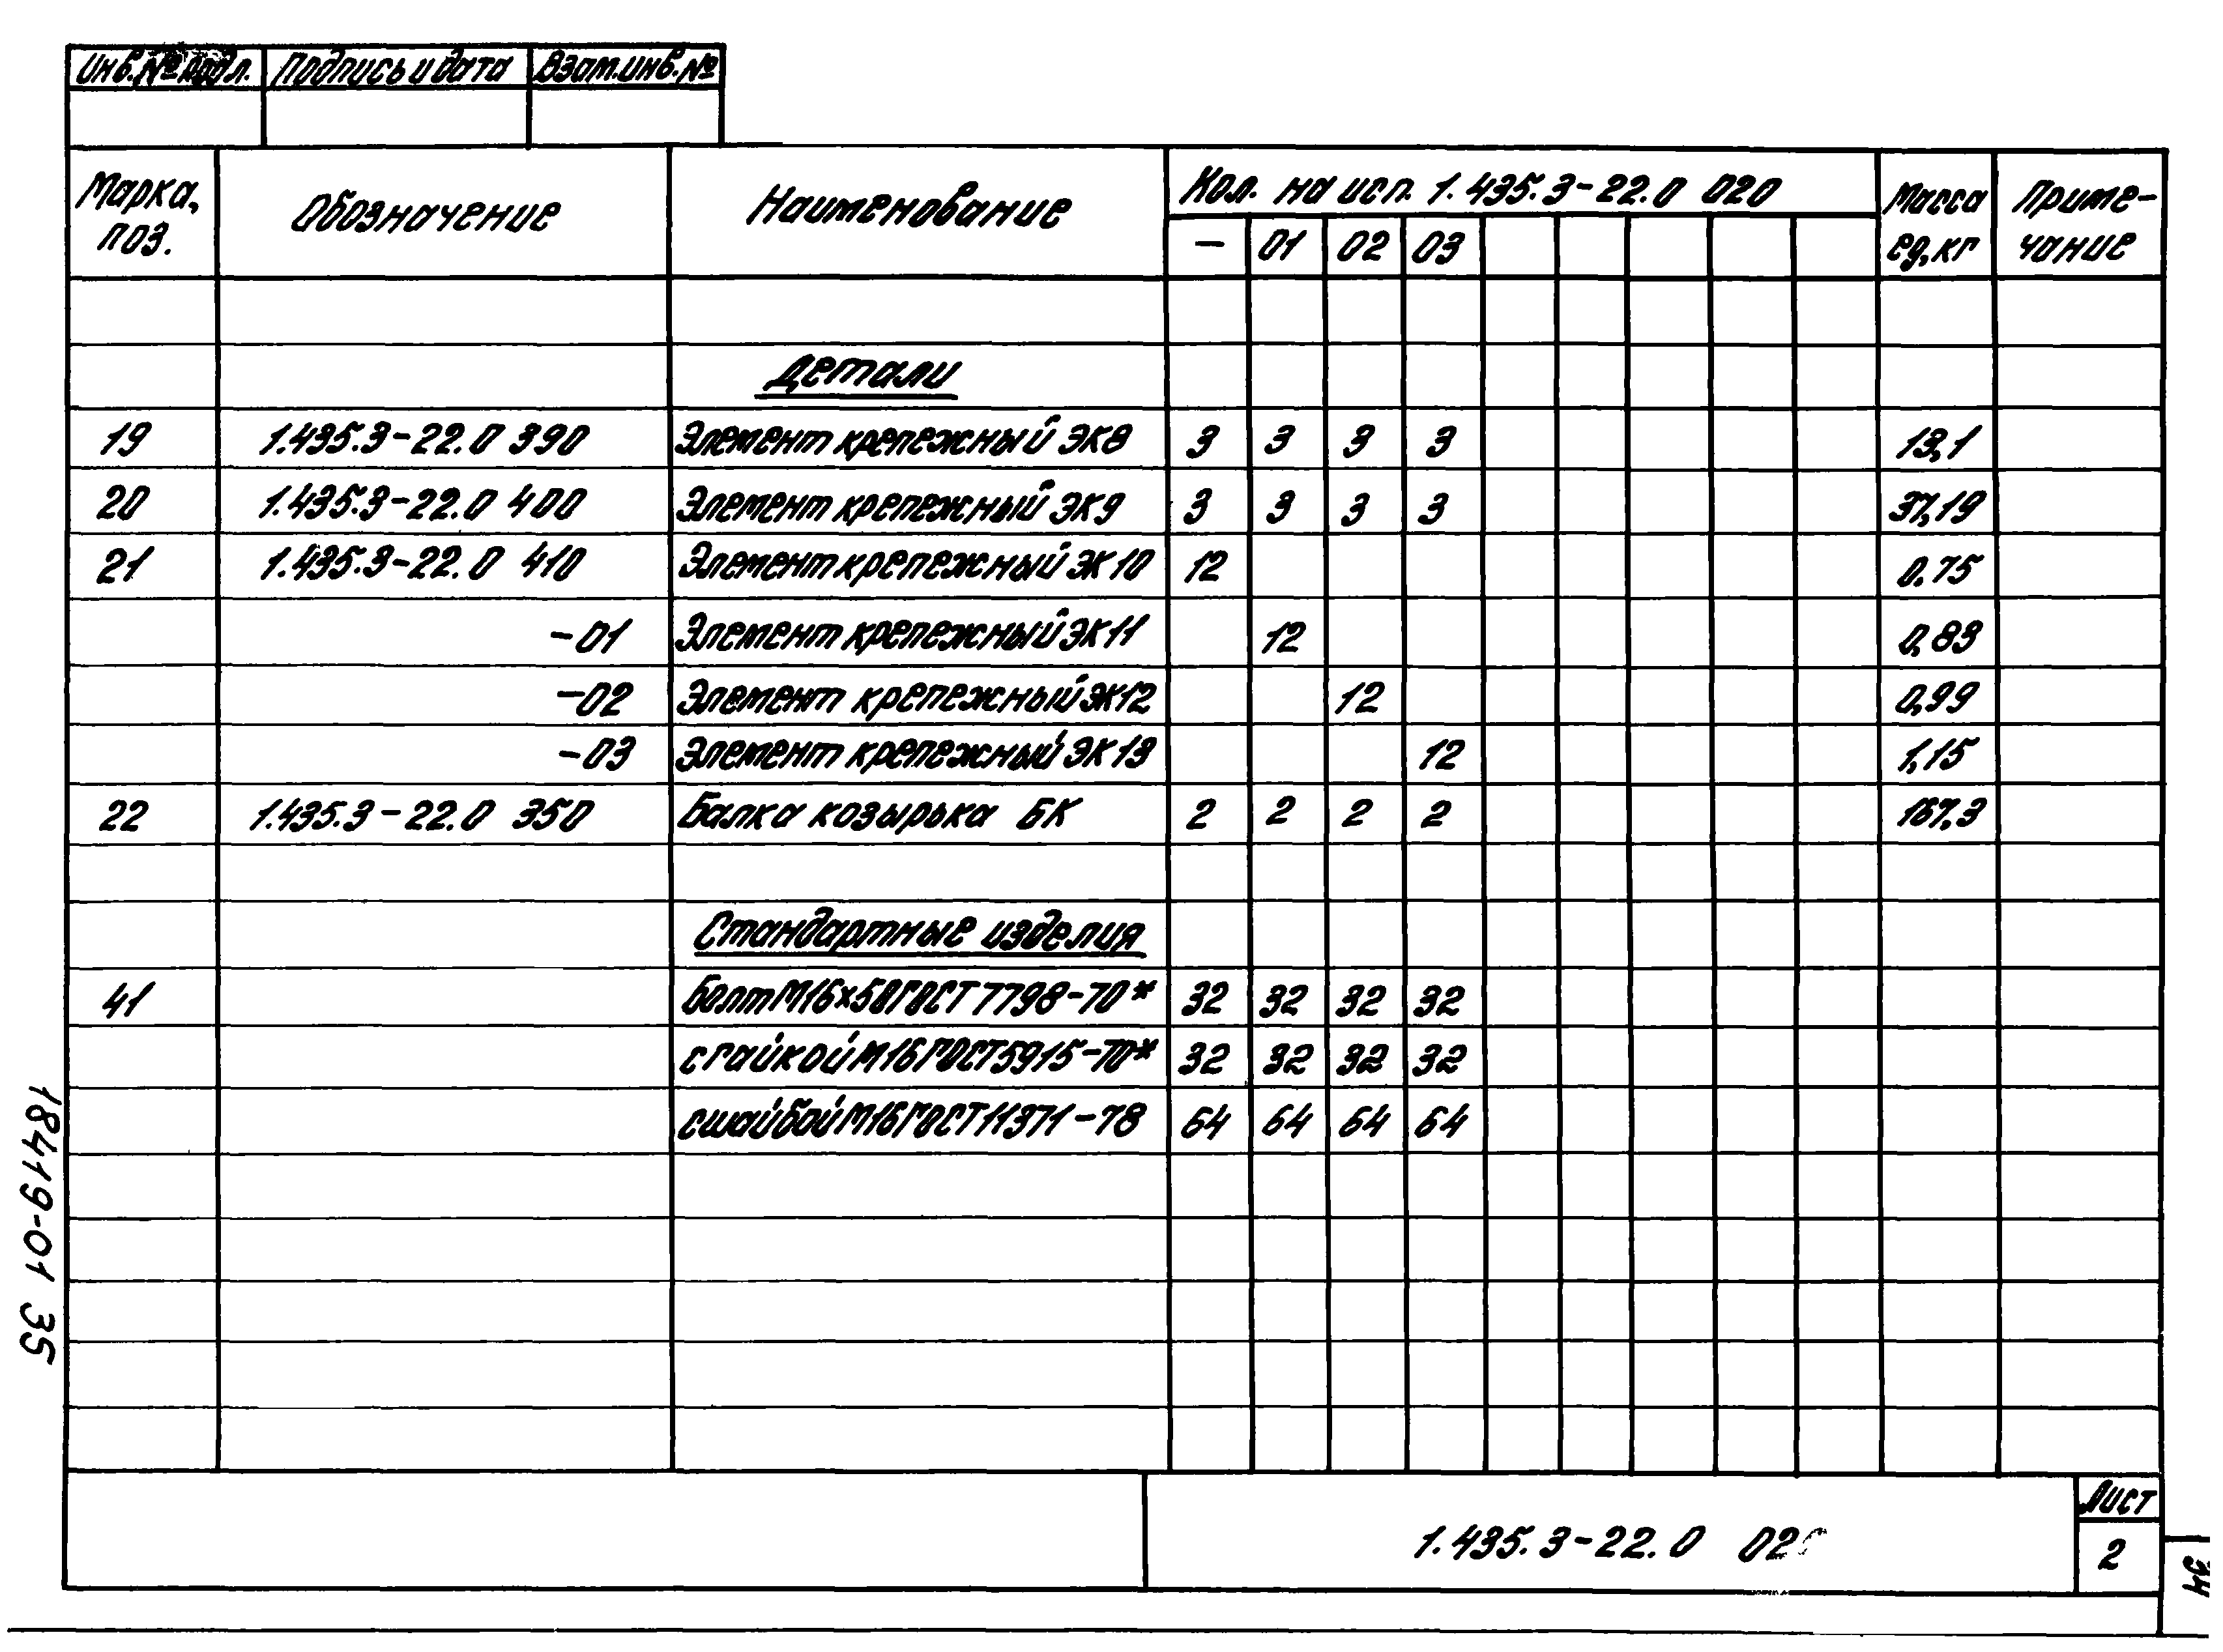 Инв.№ подл. Подпись и дата Взам.инв.№
Марка, поз. Обозначение Наименование Кол. на исп. 1.435.3-22.0 020 Масса ед,кг Приме-чание
— 01 02 03
Детали
19 1.435.3-22.0 390 Элемент крепежный ЭК8 3 3 3 3 13,1
20 1.435.3-22.0 400 Элемент крепежный ЭК9 3 3 3 3 37,19
21 1.435.3-22.0 410 Элемент крепежный ЭК10 12 0.75
-01 Элемент крепежный ЭК11 12 0,83
-02 Элемент крепежный ЭК12 12 0,99
-03 Элемент крепежный ЭК13 12 1,15
22 1.435.3-22.0 350 Балка козырька БК 2 2 2 2 167,3
Стандартные изделия
41 Болт М16×50 ГОСТ 7798-70* 32 32 32 32
с гайкой М16 ГОСТ 5915-70* 32 32 32 32
с шайбой М16 ГОСТ 11371-78 64 64 64 64
18419-01 35
1.435.3-22.0
Лист
2
34